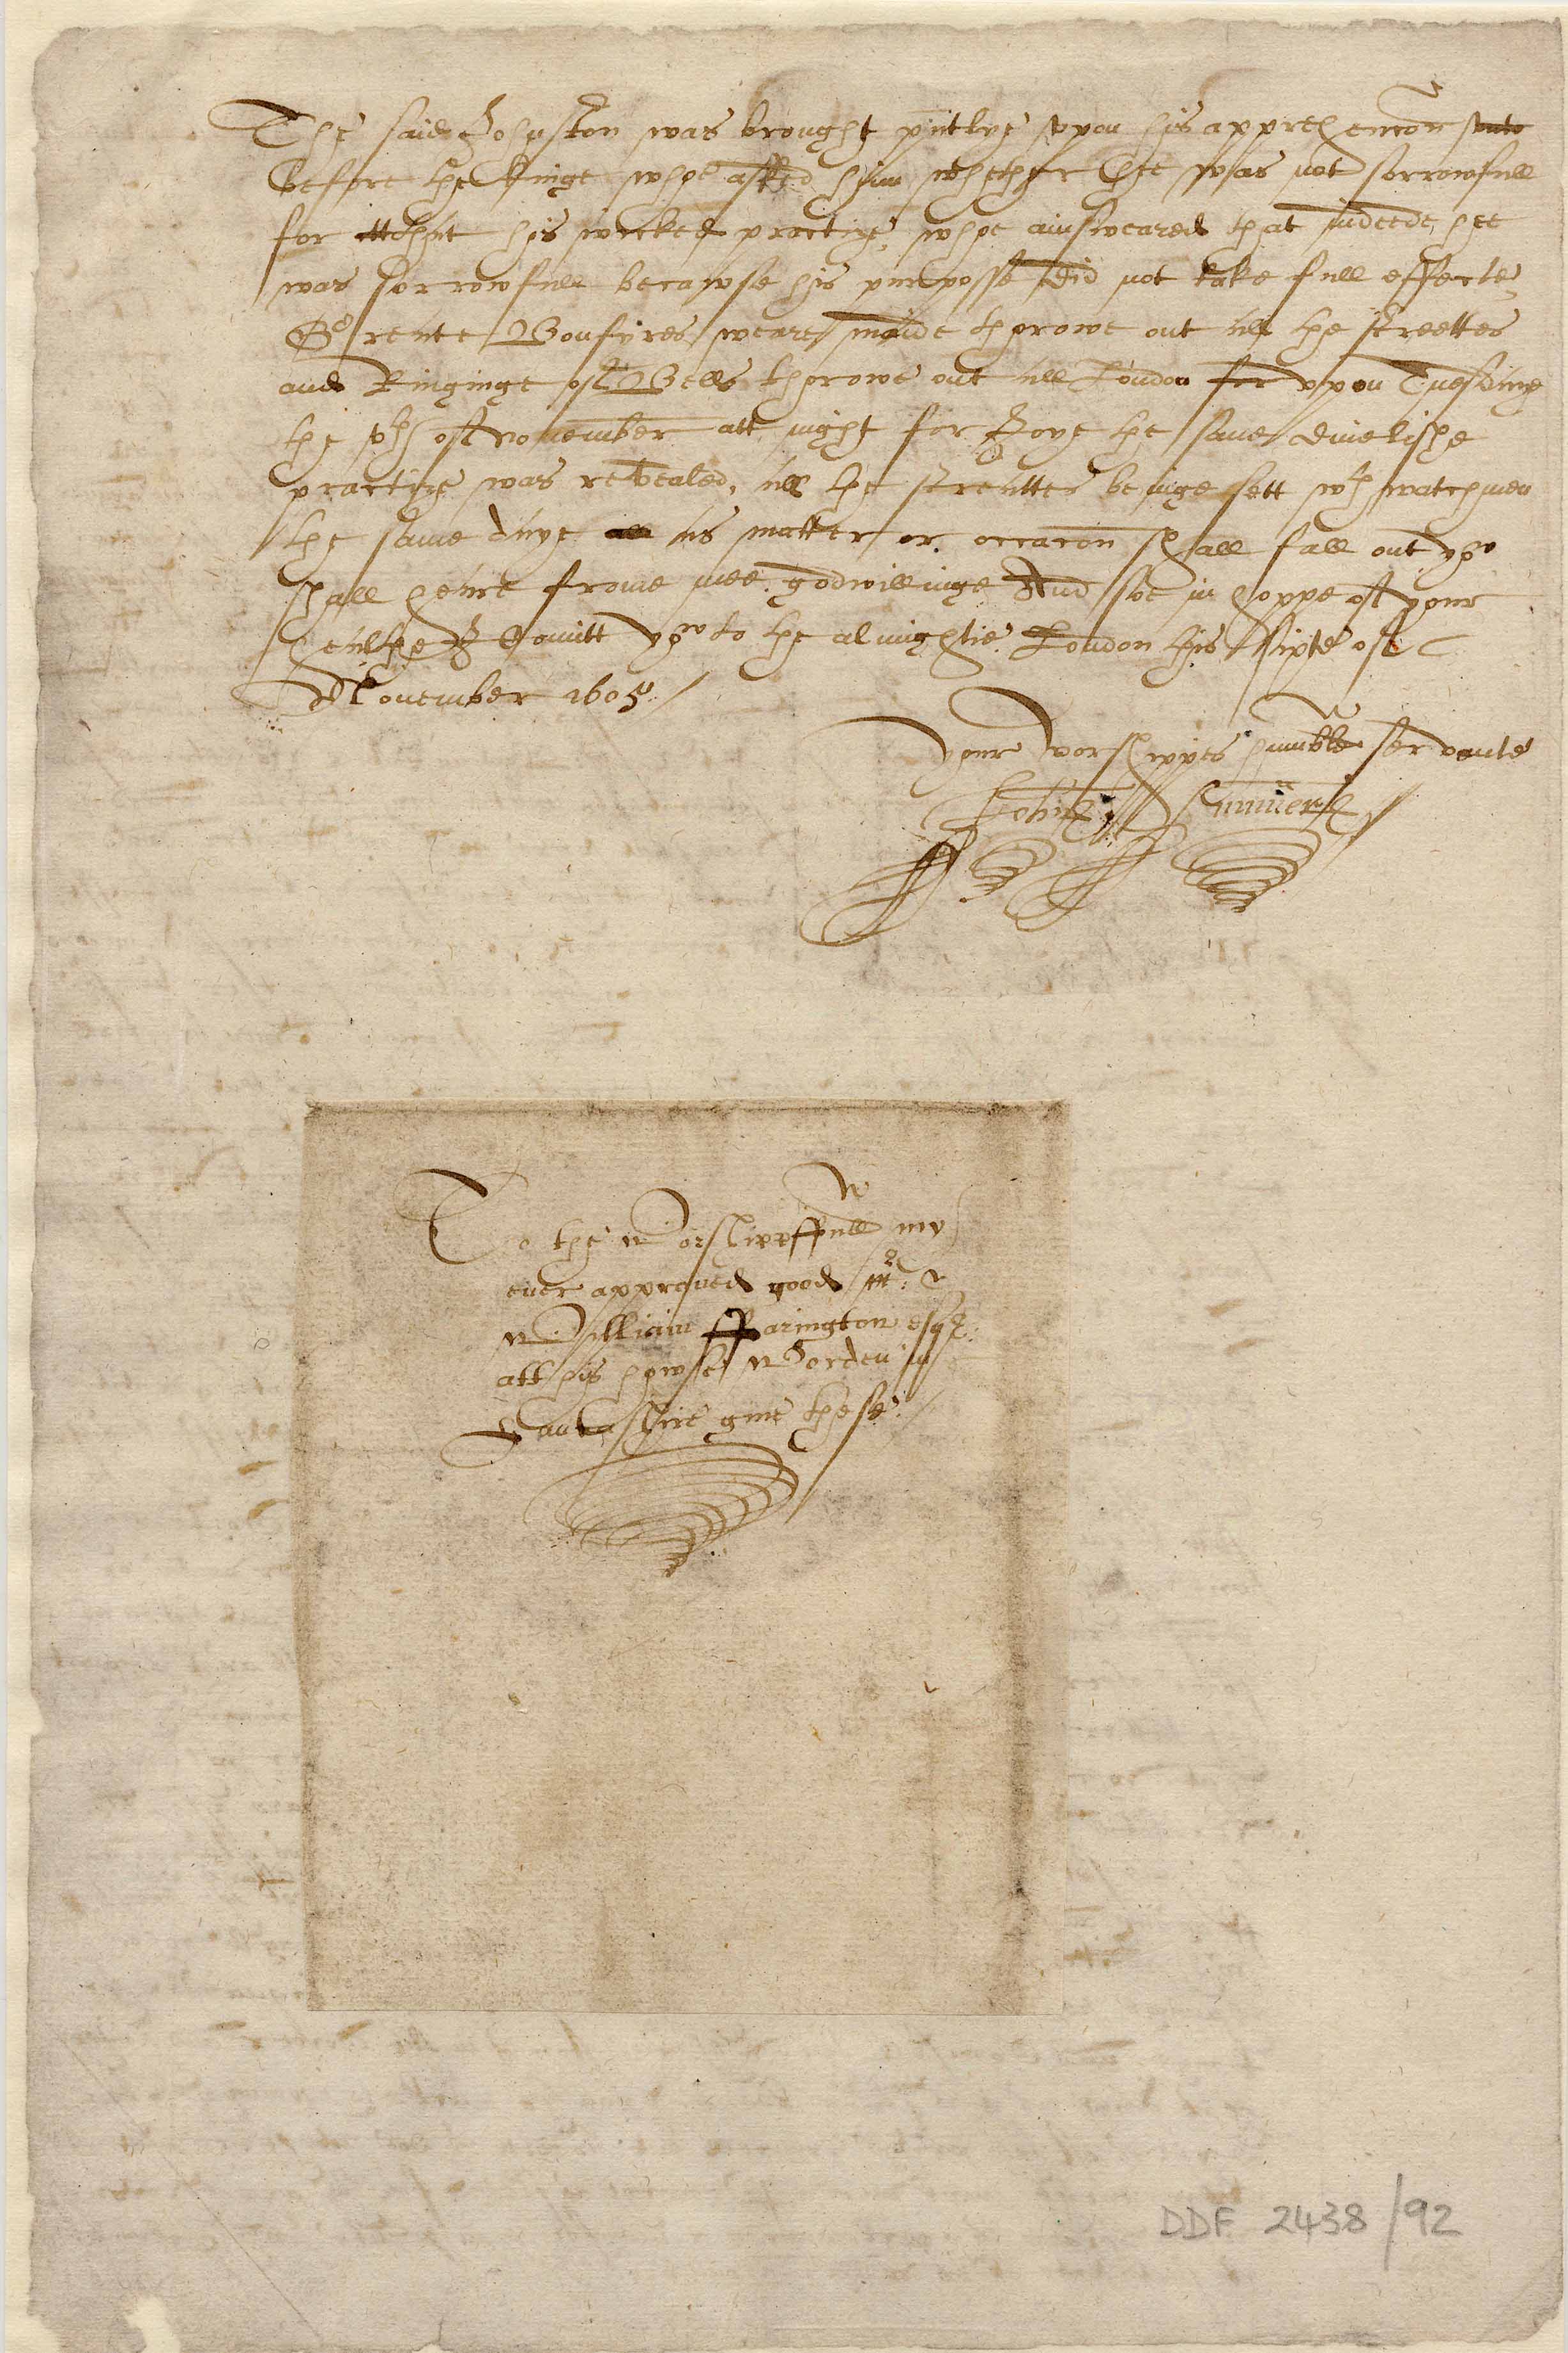 The said Johnston was brought p'ntlye vpon his apprehencon vnto
before the Kinge whoe asked him whether hee was not sorrowfull
for his wicked practize, whoe ainsweared that indeede, hee
was sorrowfull becawse his purposse did not take full effecte,
Greate Bonfyres weare maide thorowe out all the streettes
and Ringinge of Bells thorowe out all London for vpon Tuesdaye
the vth of november att night for Joye the same divelishe
practize was revealed, all the streattes beinge sett wth watchmen
the same daye all as matter or occacon shall fall out yow
shall heare frome mee godwillinge And soe in hoppe of your
healthe I Comitt yow to the almightie. London this sixte of
November 1605./
Your worshippes humble servante
To the worshippffull my
ever approved good mr:
William ffarington esqr:
att his howse Worden in
Lancashire give these./
DDF 2438/92